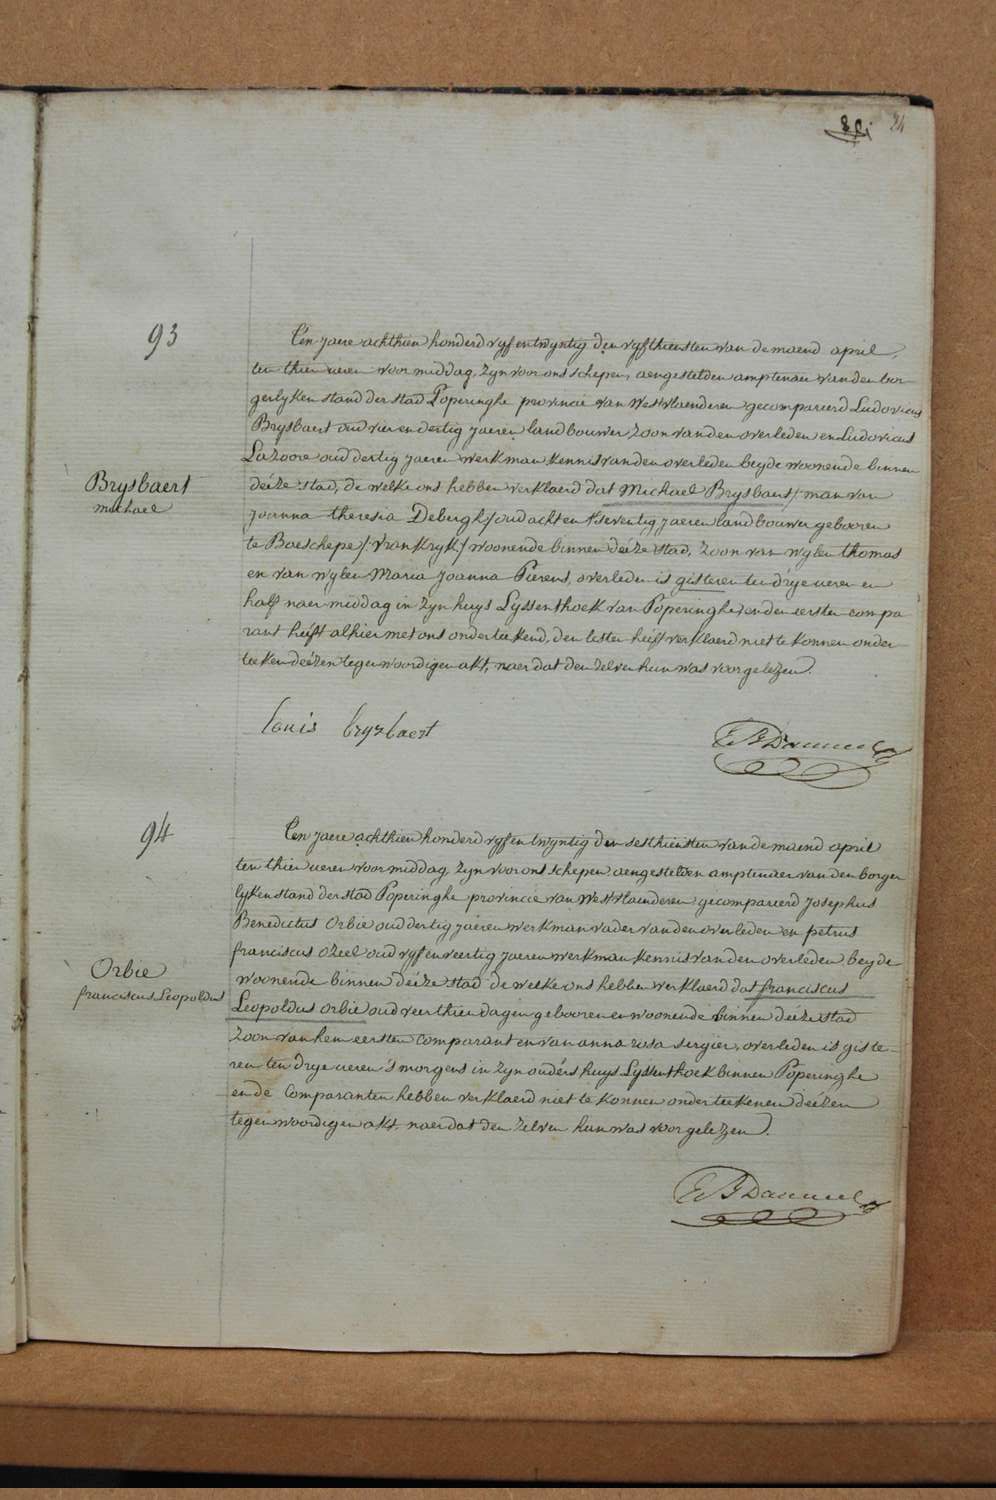 24
93
Een jaere achthien honderd vyf en twyntig den vyfthiensten van de maend april,
ten thien ueren voor middag, zyn voor ons schepen, aengestelden amptenaer van den bor-
gerlyken stand der stad Poperinghe provincie van Westvlaenderen gecompareerd Ludovicus
Brysbaert oud vier en dertig jaeren landbouwer, zoon van den overleden en Ludovicus
Lazoore oud dertig jaeren werkman kennis van den overleden beyde woonende binnen
Brysbaert
michael
deéze stad, de welke ons hebben verklaerd dat Michael Brysbaert /: man van
Joanna theresia Debergh/ oud acht en tseventig jaeren landbouwer gebooren
te Boeschepe /: Vrankryk/ woonende binnen deéze stad, zoon van wylen thomas
en van wylen Maria Joanna Pierens, overleden is gisteren ten drye ueren en
half naer middag in zyn huys Lyssenthoek van Poperinghe, en den eersten compa
rant heéft alhier met ons onderteekend, den lesten heéft verklaerd niet te konnen onder
teeken deézen tegenwoordigen akt, naer dat den zelven hun was voorgelezen.
louis brysbaert
94
Een jaere achthien honderd vyf en twyntig den sesthiensten van de maend april
ten thien ueren voor middag zyn voor ons schepen aengestelden amptenaer van den borger
lyken stand der stad Poperinghe provincie van Westvlaenderen gecompareerd Josephus
Benedictus Orbie oud dertig jaeren werkman vader van den overleden en petrus
franciscus Ozeel oud vyf en veertig jaeren werkman kennis van den overleden beyde
Orbie
franciscus Leopoldus
woonende binnen deéze stad de welke ons hebben verklaerd dat franciscus
Leopoldus Orbie oud veerthien dagen gebooren en woonende binnen deéze stad
zoon van hem eersten comparant en van anna rosa sergier, overleden is giste-
ren ten drye ueren 's morgens in zyn ouders huys Lyssenthoek binnen Poperinghe
en de comparanten hebben verklaerd niet te konnen onderteekenen deézen
tegenwoordigen akt, naer dat den zelven hun was voorgelezen.